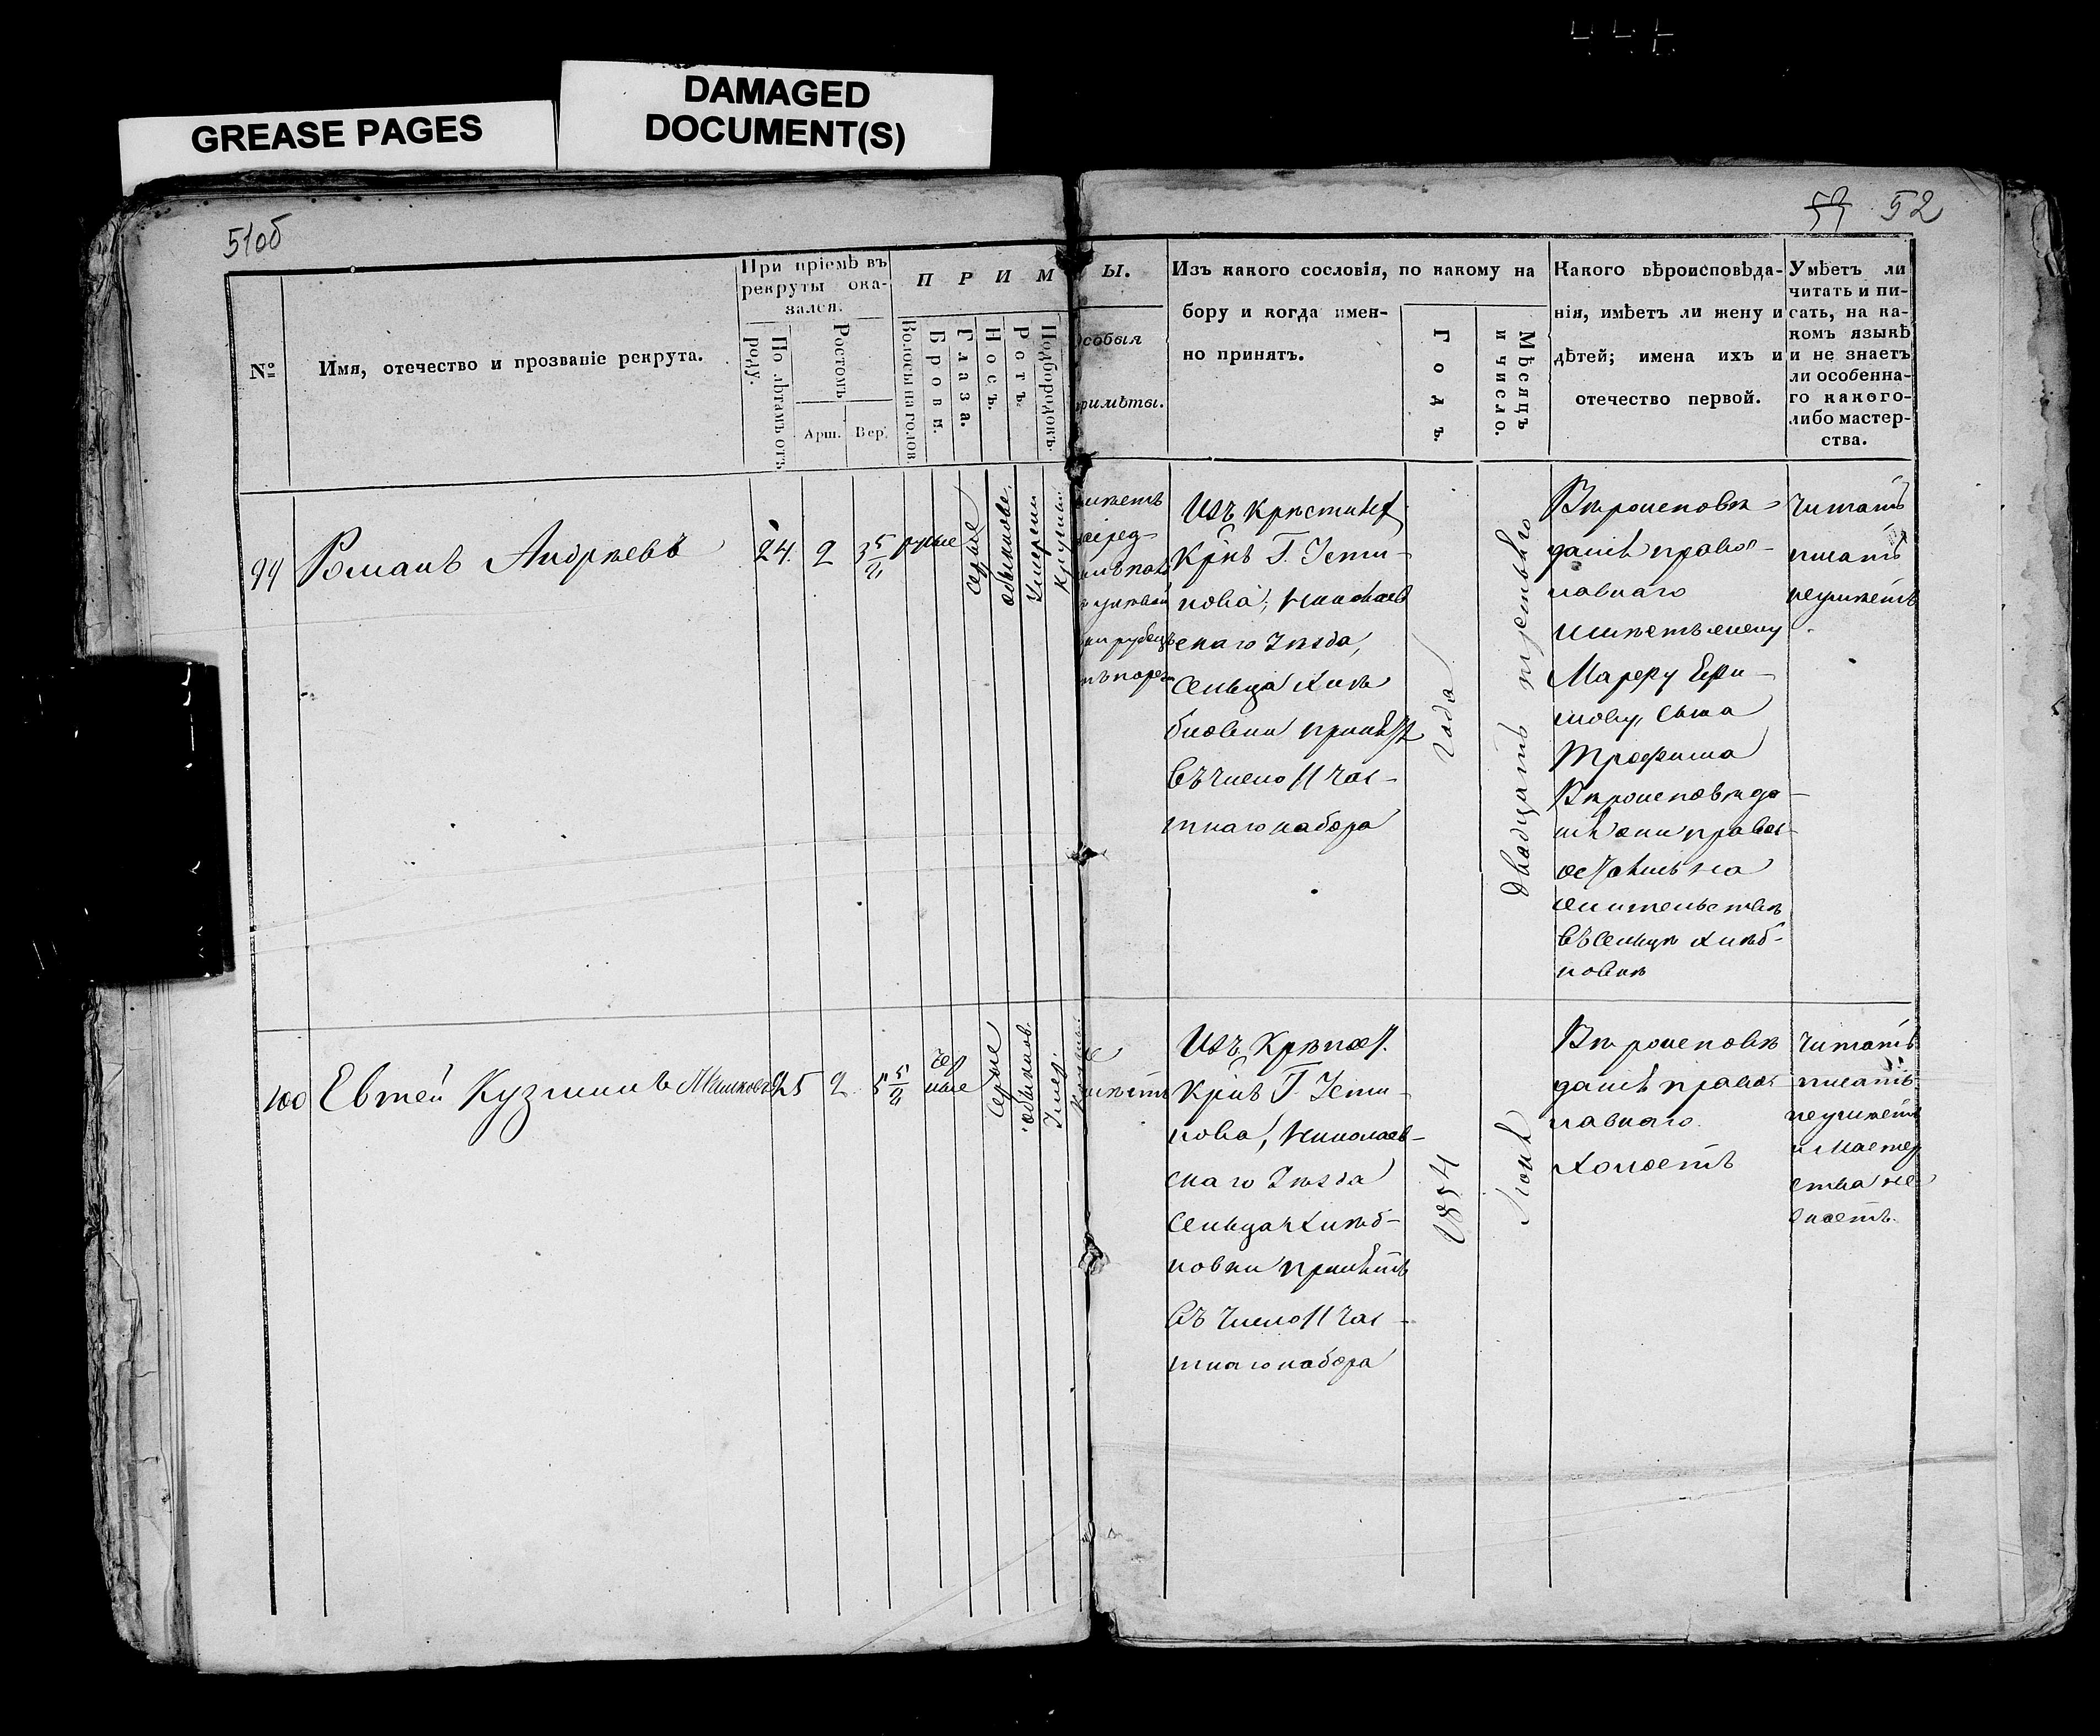 GREASE PAGES
DAMAGED
DOCUMENT(S)
51об
52
№
Имя, отечество и прозваніе рекрута.
При пріемѣ въ
рекруты ока-
зался.
По лѣтамъ отъ
роду.
Ростомъ
Арш.
Вер.
П Р И М
Волосы на голов
Брови.
Глаза.
Носъ.
Ротъ.
Подбородокъ.
Ы.
собыя
римѣты.
Изъ какого сословія, по какому на
бору и когда имен-
но принятъ.
Годъ.
Мѣсяцъ
и число.
Какого вѣроисповѣда-
нія, имѣетъ ли жену и
дѣтей; имена ихъ и
отечество первой.
Умѣетъ ли
читать и пи-
сать, на ка-
комъ языкѣ
и не знаетъ
ли особенна-
го какого-
либо мастер-
ства.
99
Романъ Андреевъ
24.
2
3 5/8
русые
серые
обыкнове.
Умерен
Круглый
имѣетъ
серед-
Изъ
Крѣ Г. Усти-
нова, Николаев
скаго Уѣзда,
Сельца Хлѣ
бновки принятъ
въ число 11 час-
тнаго набора
года
двадцать третьяго
Вѣроисповѣ-
данія правос-
лавнаго
имѣетъ жену
Марфу Ефи-
мову, сына
Трофима
Вѣроисповѣда-
нія они правос-
остались на
жительствѣ
въ Сельцѣ Хлѣб-
новкѣ
Читать
писать
неумѣетъ
100
Евтей Кузминъ
25
2
5 5/8
чер
ные
серые
обыкнов.
Умер.
Круглый
Изъ Крѣпост.
Крѣ Г. Усти-
нова, Николаев-
скаго Уѣзда
Сельца Хлѣб-
новки принятъ
въ число 11 час-
тнаго набора
1854
Іюня
Вѣроисповѣ
данія правос
лавнаго
Холостъ
Читать
писать
неумѣетъ
и мастер
ства не
знаетъ.